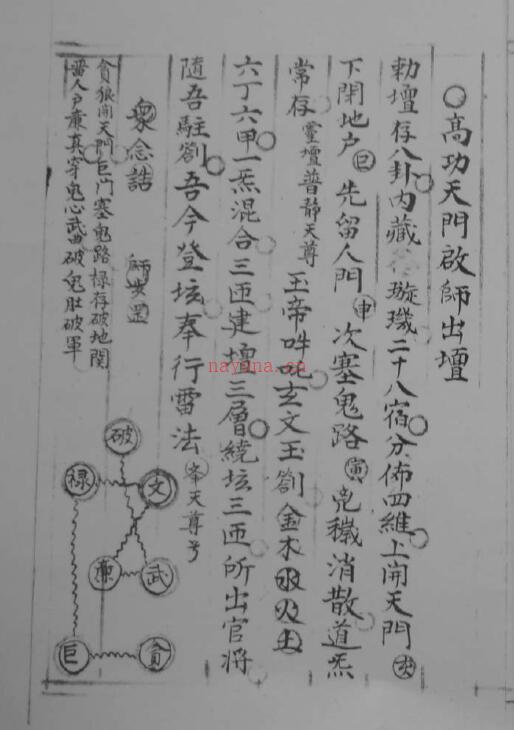 高功天門啟師出壇
勅壇存八卦內藏璇璣二十八宿分佈四維上開天門亥
下閉地户巳先留人門申次塞鬼路寅兇穢消散道炁
常存靈壇普静天尊玉帝吽吒玄文玉劄金木水火土
六丁六甲一炁混合三匝建壇三層繞坛三匝所出官将
隨吾駐劄吾今登坛奉行雷法举天尊号
众念誥 師步罡
貪狼開天門巨门塞鬼路禄存破地関
畱人户亷真穿鬼心武曲破鬼肚破軍
破
禄
文
亷
武
巨
貪
nayona.cn